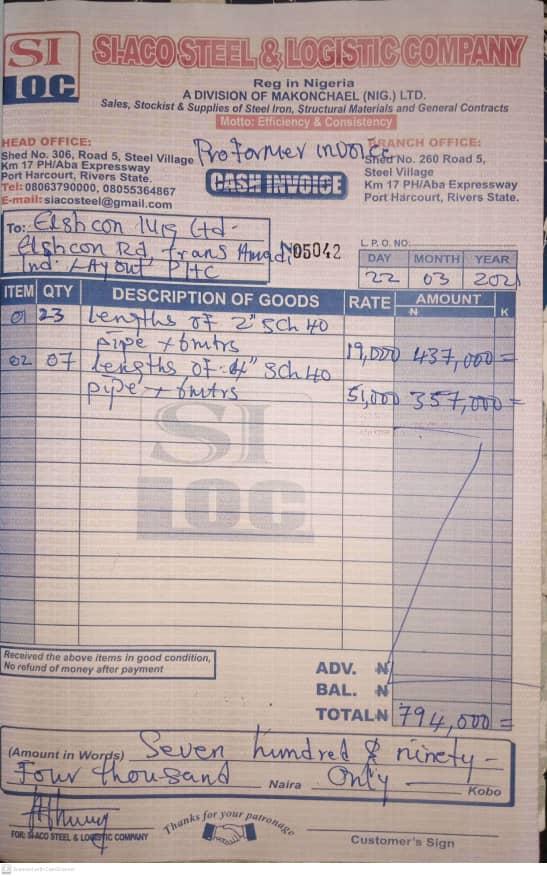 SI
LOC
SI-ACO STEEL & LOGISTIC COMPANY
Reg in Nigeria
A DIVISION OF MAKONCHAEL (NIG.) LTD.
Sales, Stockist & Supplies of Steel Iron, Structural Materials and General Contracts
Motto: Efficiency & Consistency
HEAD OFFICE:
Shed No. 306, Road 5, Steel Village
Km 17 PH/Aba Expressway
Port Harcourt, Rivers State.
Tel: 08063790000, 08055364867
E-mail: siacosteel@gmail.com
Proformer invoice
CASH INVOICE
BRANCH OFFICE:
Shed No. 260 Road 5,
Steel Village
Km 17 PH/Aba Expressway
Port Harcourt, Rivers State.
To: Elshcon Nig Ltd.
Elshcon Rd, Trans Amadi
Ind. Layout PHC
No 05042
L.P.O. NO.
DAY MONTH YEAR
22 03 2021
ITEM QTY DESCRIPTION OF GOODS RATE AMOUNT
₦ K
01 23 Lengths of 2" Sch 40
pipe x 6mtrs 19,000 437,000 =
02 07 Lengths of 4" Sch 40
pipe x 6mtrs 51,000 357,000 =
SI
LOC
Received the above items in good condition,
No refund of money after payment
ADV. ₦
BAL. ₦
TOTAL ₦ 794,000 =
(Amount in Words) Seven hundred & ninety-
Four thousand Naira Only Kobo
Thanks for your patronage
FOR: SI-ACO STEEL & LOGISTIC COMPANY
Customer's Sign
Scanned with CamScanner